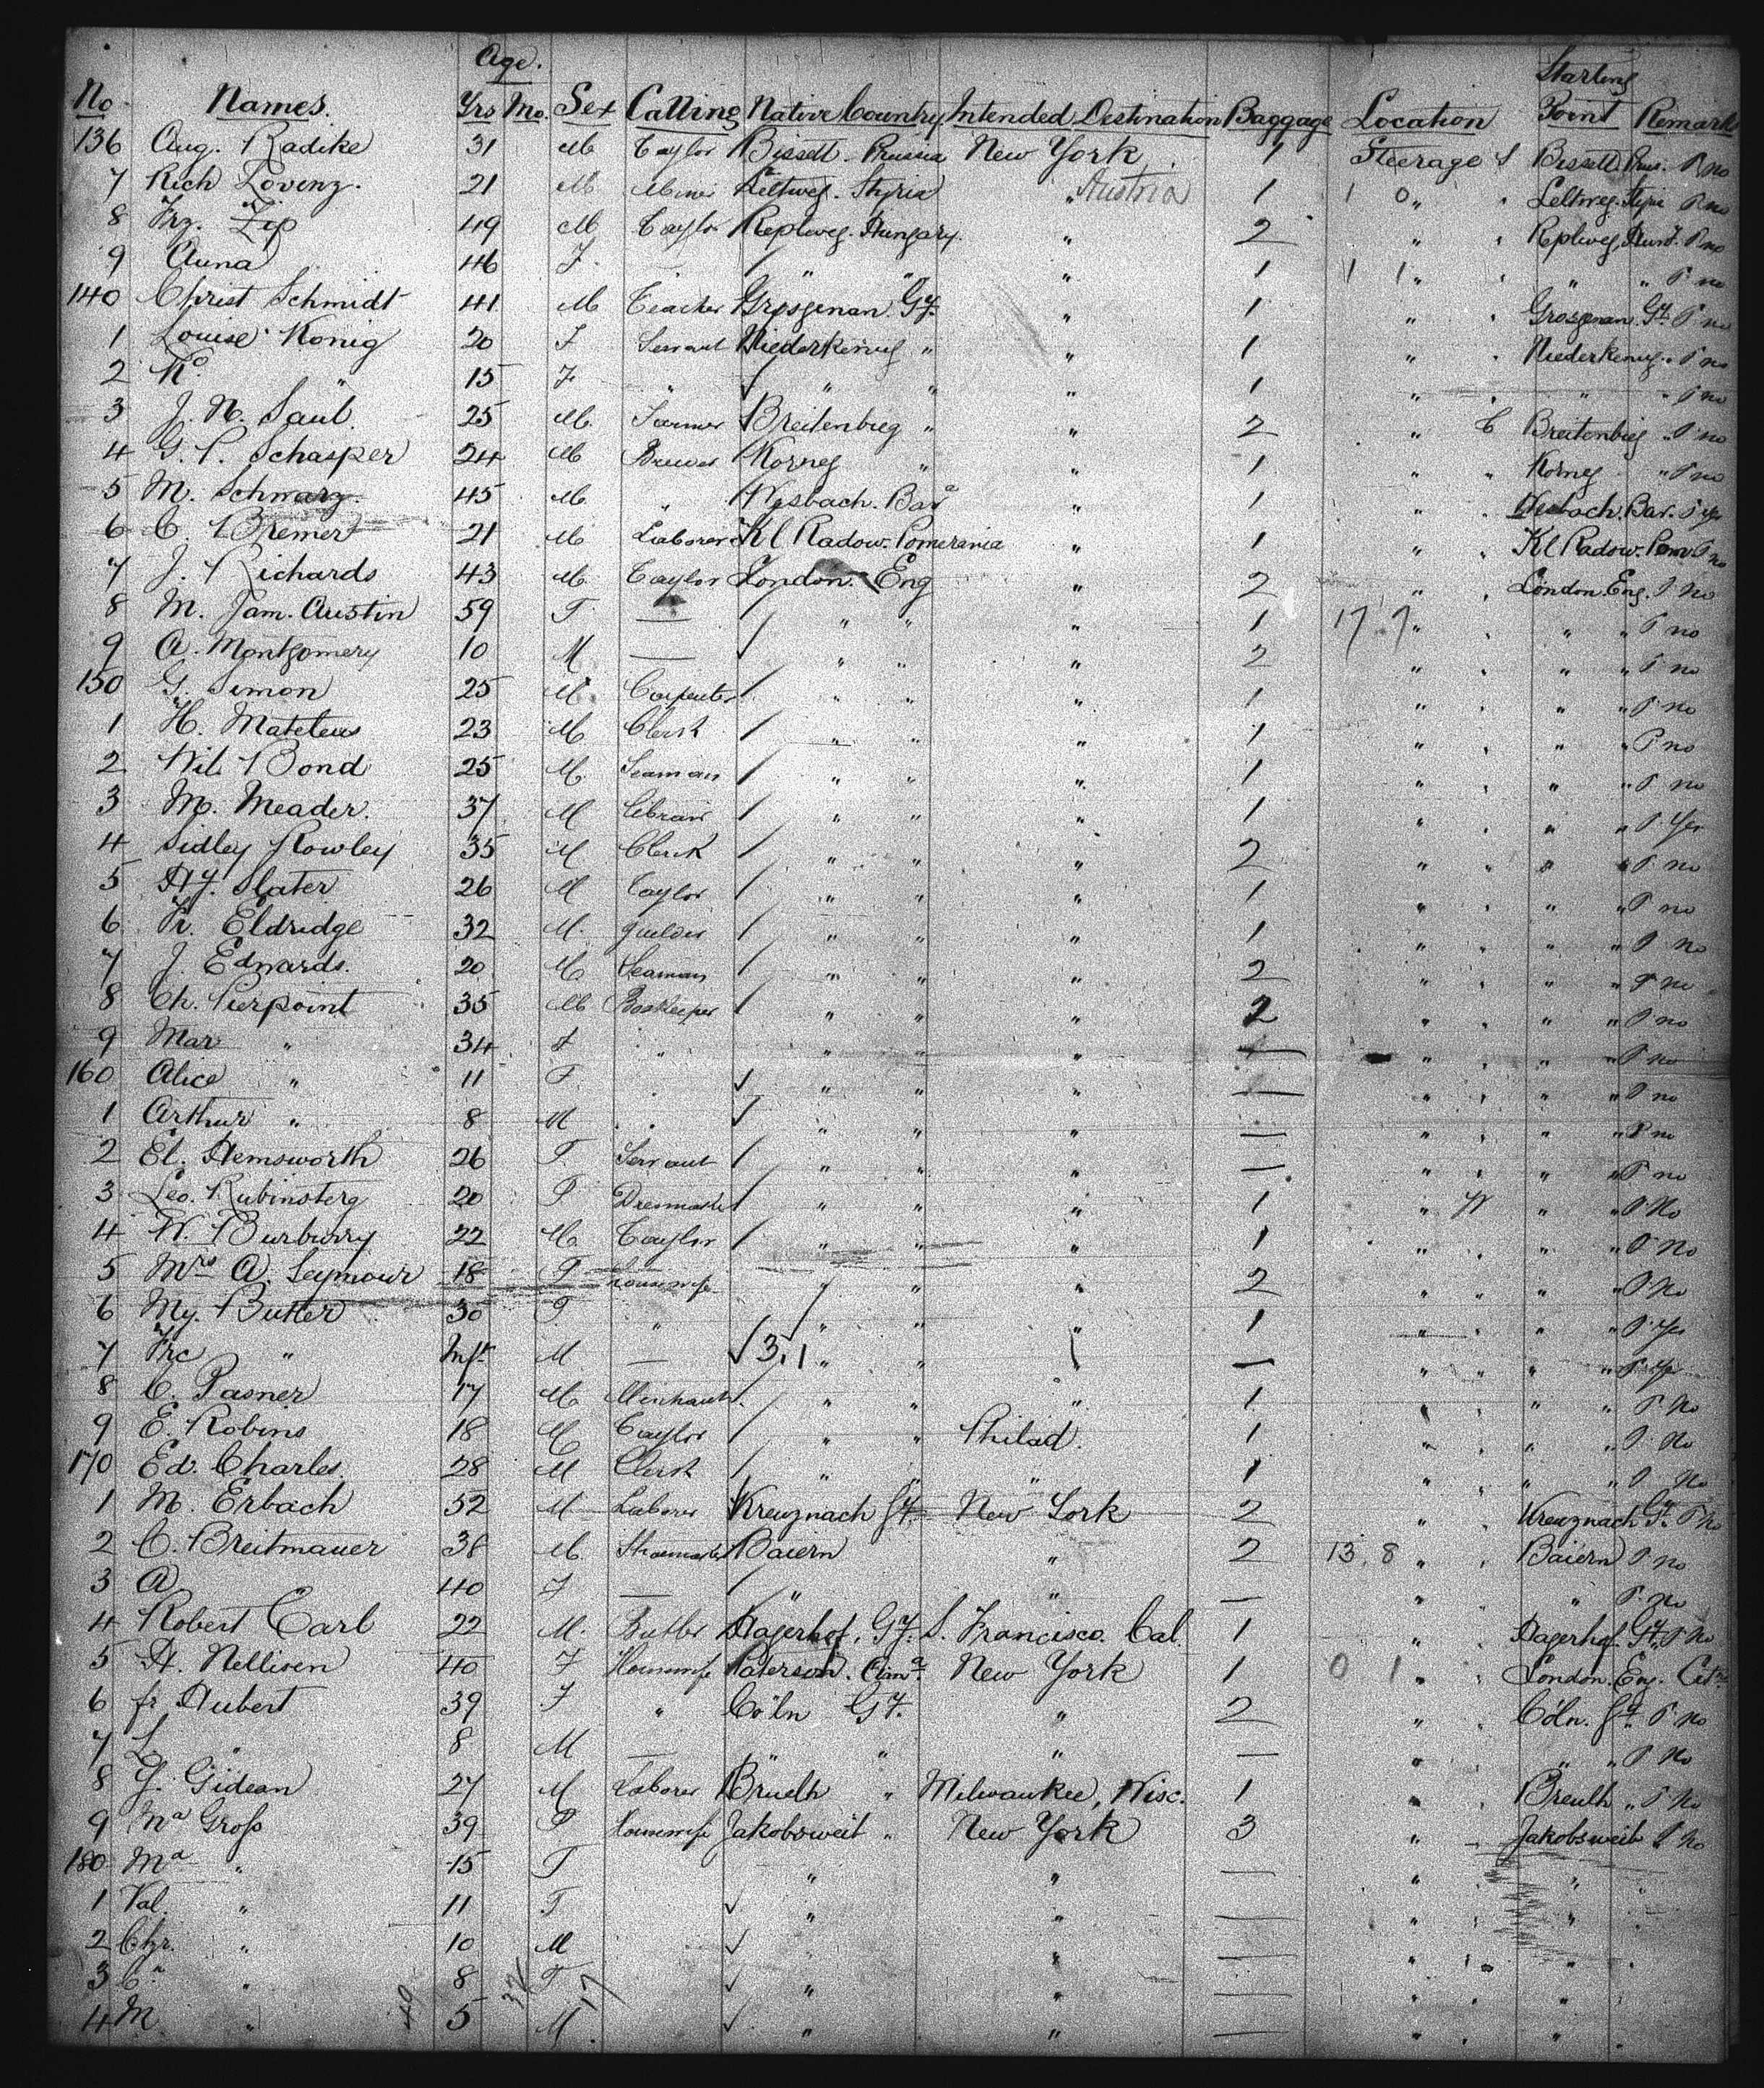 Age. Starting
No Names. Yrs Mo. Sex Calling Native Country Intended Destination Baggage Location Point Remarks
136 Aug. Radike 31 M Taylor Bissell. Prussia New York 1 Steerage Bissell. Prus. P no
7 Rich Lorenz. 21 M Miner Leltweg. Styria " Austria 1 1 0 " " Leltweg. P no
8 Frz. Zip 49 M Taylor Replweg. Hungary. " 2 " " Replweg P no
9 Anna 46 F — " " " 1 1 1 " " " " P no
140 Christ Schmidt 41 M Teacher Grosgenan. Gy. " 1 " " Grosgenan. Gy. P no
1 Louise König 20 F Servant Niederkemy " " 1 " " Niederkemy " P no
2 K " 15 F " " " " 1 " " " " P no
3 J. N. Saul. 25 M Farmer Breitenbieg " " 2 " C Breitenbieg " P no
4 G. P. Schasper 24 M Brewer Korneg " " 1 " " Korneg " P no
5 M. Schwarz 45 M " Wesbach. Bav " 1 " " Wesbach. Bav. P yes
6 C. Bremer 21 M Laborer Kl Radow. Pomerania " 1 " " Kl Radow. Pom. P no
7 J. Richards 43 M Taylor London. Eng " 2 " " London. Eng. P No
8 M. Jam. Austin 59 F — " " " 1 17.7 " " " " P no
9 A. Montgomery 10 M — " " " 2 " " " " P no
150 G. Simon 25 M Carpenter " " " 1 " " " " P no
1 H. Mateleus 23 M Clerk " " " 1 " " " " P no
2 Wil. Bond 25 M Seaman " " " 1 " " " " P no
3 M. Meader. 37 M " " " 1 " " " " P Yes
4 Sidley Rowley 35 M Clerk " " " 2 " " " " P no
5 Hy. Slater 26 M Taylor " " " 1 " " " " P no
6 Fr. Eldridge 32 M. " " " 1 " " " " P No
7 J. Edwards. 20 M Seaman " " " 2 " " " " P no
8 Ch. Pierpoint 35 M Bookkeeper " " " 2 " " " " P no
9 Mar " 34 F " " " " — " " " " P no
160 Alice " 11 F " " " — " " " " P no
1 Arthur " 8 M " " " — " " " " P no
2 El. Hemsworth 26 F Servant " " " — " " " " P no
3 Leo. Rubinsterg 20 F Dresmaker " " " 1 " W " " P No
4 W. Burburry 22 M Taylor " " " 1 " " " " P No
5 Mrs A. Seymour 18 F housewife " " 2 " " " " P No
6 My. Butler 30 F " " " " 1 " " " " P Yes
7 Frc " Inft M — 3,1 " " — " " " " P Yes
8 C. Pasner 17 M Merchant " " " 1 " " " P No
9 E. Robins 18 M Taylor " " Philad. 1 " " " " P No
170 Ed. Charles. 28 M Clerk " " " 1 " " " " P No
1 M. Erbach 52 M Laborer Kreuznach Gy. New York 2 " " Kreuznach Gy. P No
2 C. Breitmauer 38 M Shoemaker Baiern " 2 13.8 " " Baiern P no
3 A 40 F — " " — " P. no
4 Robert Carl 22 M. Butler Hagerhof. Gy. S. Francisco. Cal. 1 " Hagerhof. Gy. P No
5 H. Nellisen 40 F Housewife Paterson. New York 1 0 1 " " London. Eng.
6 fr Hubert 39 F " Cöln Gy. " 2 " " Cöln. Gy. P No
7 L " 8 M — " " — " " " " P No
8 J. Gidean 27 M Laborer Bruelh " Milwaukee, Wisc. 1 " " Breulh " P No
9 Na Gross 39 F Housewife Jakobsweit " New York 3 " — Jakobsweit P No
180 Ma " 15 F " " — " " "
1 Val. " 11 F " " — " " "
2 Chr. " 10 M " " — " " "
3 Ca " 8 F " " — " " "
4 M " 5 M. " " — " " "
40 32 17